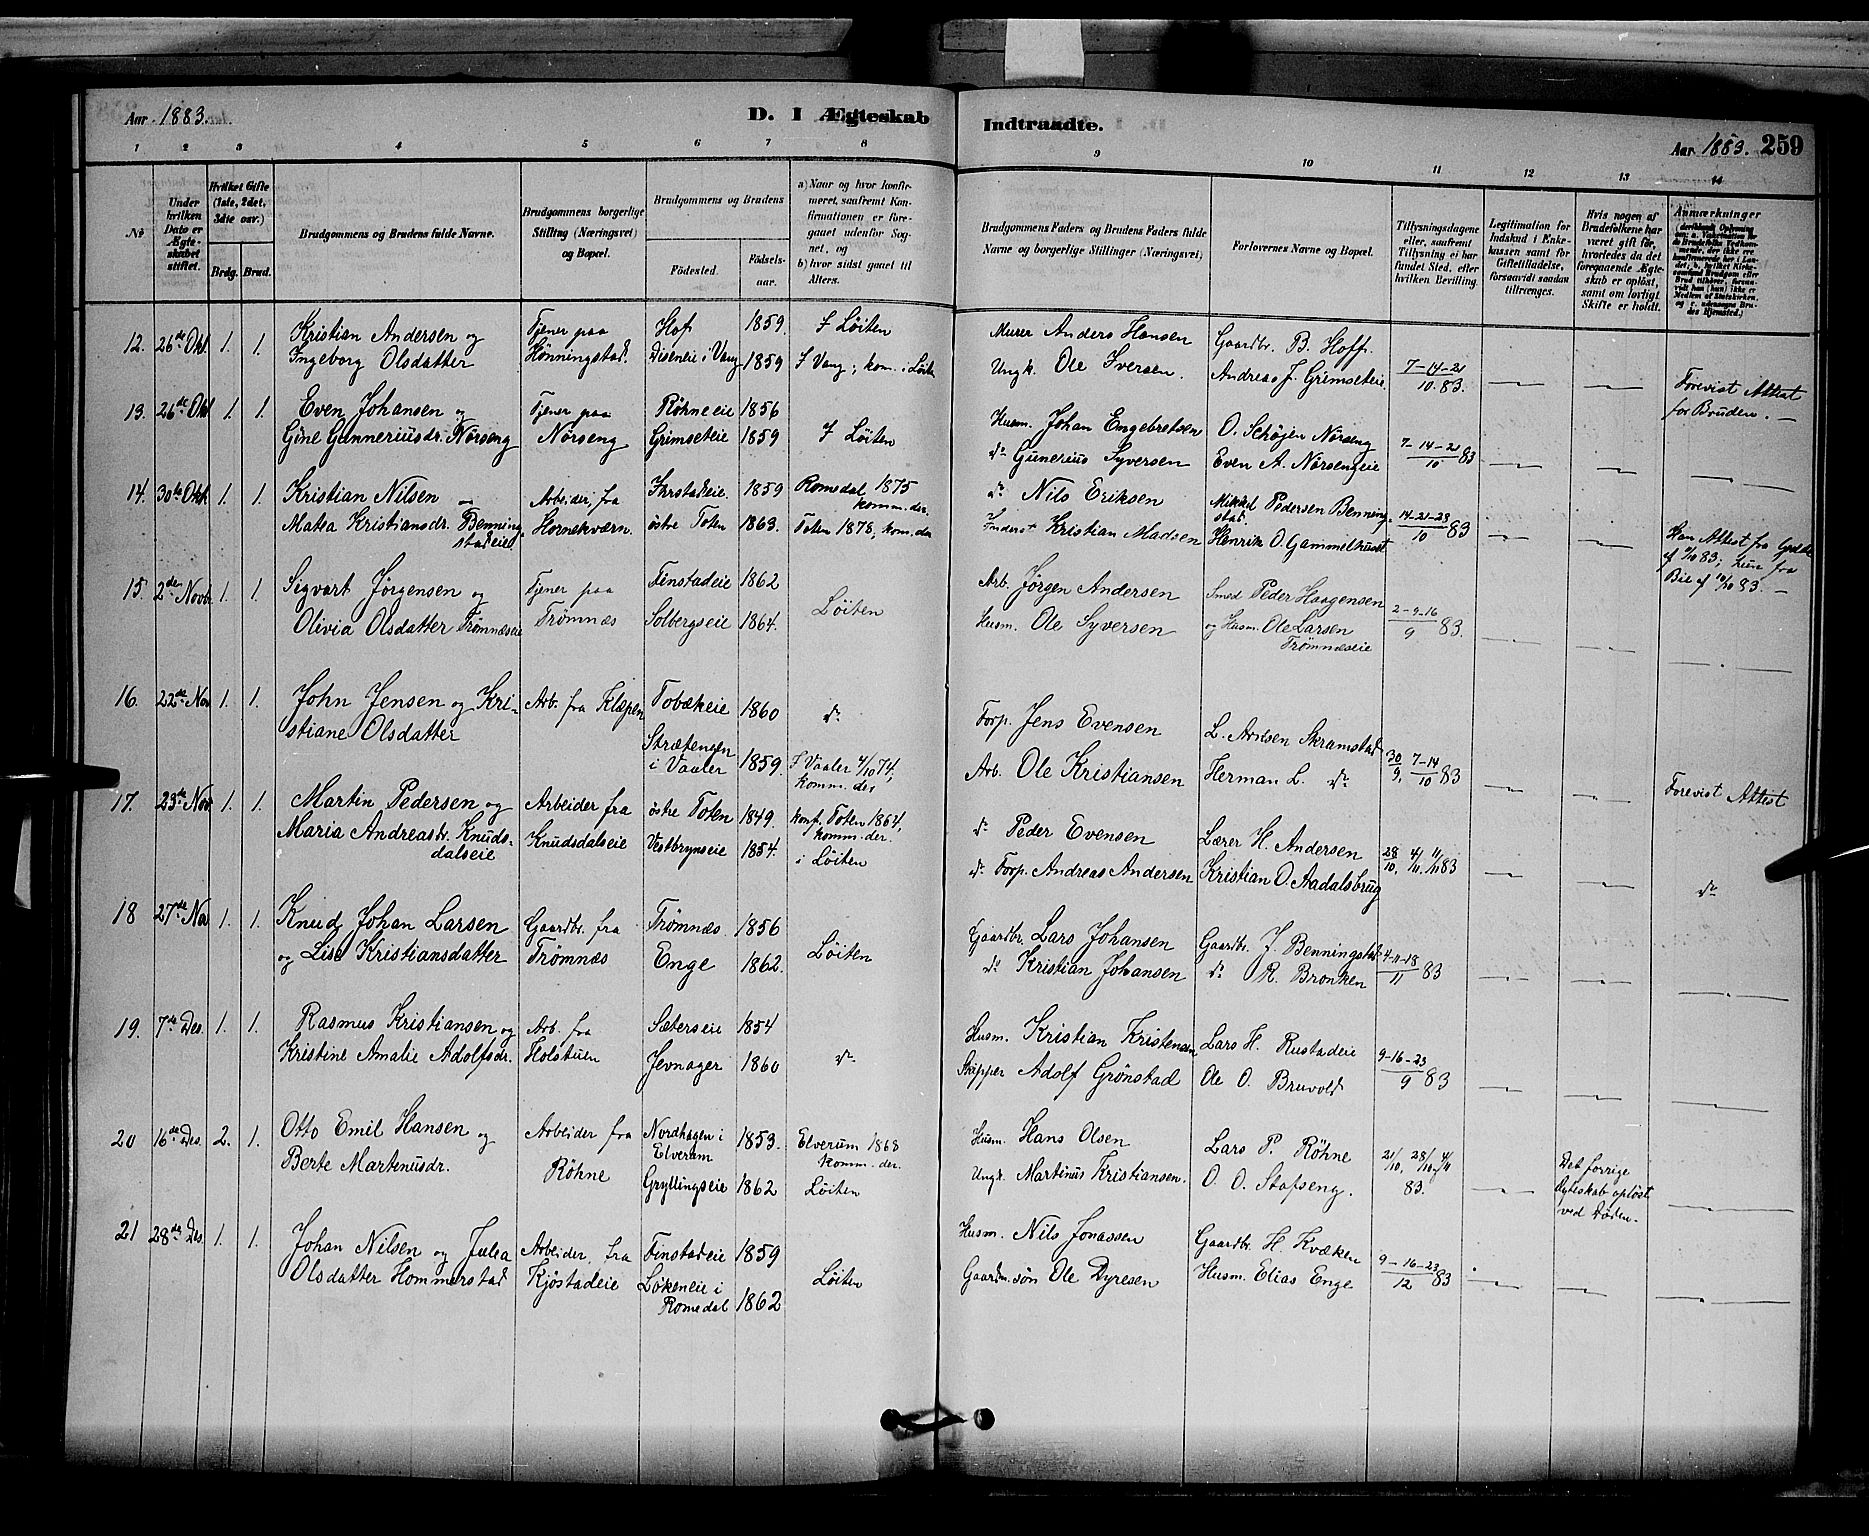 Aar 1883.
D. I Ægteskab Indtraadte.
Aar 1883. 259
1 2 3 4 5 6 7 8 9 10 11 12 13 14
No
Under hvilken Dato er Ægteskabet stiftet.
Hvilket Gifte (1ste, 2det, 3die osv.)
Brdg. Brud.
Brudgommens og Brudens fulde Navne.
Brudgommens borgerlige Stilling (Næringsvei) og Bopæl.
Brudgommens og Brudens
Födested.
Födselsaar.
a) Naar og hvor konfirmeret, saafremt Konfirmationen er foregaaet udenfor Sognet, og
b) hvor sidst gaaet til Alters.
Brudgommens Faders og Brudens Faders fulde Navne og borgerlige Stillinger (Næringsvei).
Forlovernes Navne og Bopæl.
Tillysningsdagene eller, saafremt Tillysning ei har fundet Sted, efter hvilken Bevilling.
Legitimation for Indskud i Enkekassen samt for Giftetilladelse, forsaavidt saadan tiltrænges.
Hvis nogen af Brudefolkene har været gift før, hvorledes da det foregaaende Ægteskab er oplöst, samt om lovligt Skifte er holdt.
Anmærkninger
12. 26de Okt. 1. 1. Kristian Andersen og Tjener paa Hof 1859. I Løiten Murer Anders Hansen Gaardbr. B. Hoff.
Ingeborg Olsdatter Hønningstad. Diseneie i Vang 1859 I Vang, kom. i Løiten Ungk. Ole Iversen. Andreas J. Grimseteie 7-14-21/10. 83. Forevist Attest for Bruden.
13. 26de Okt 1. 1. Even Johansen og Tjener paa Røhneeie 1856 Husm. Johan Engebretsen O. Schøjen Nørseng
Gine Gunneriusdr. Nørseng Nørseng Grimseteie 1859 I Løiten do Gunerius Syversen Even A. Nørsengeie 7-14-21/10 83
14. 30te Okt. 1. 1. Kristian Nilsen og Arbeider, fra 1859 Romedal 1875 komm. der. do Nils Eriksen Mikkel Pedersen Benningstad.
Matea Kristiansdr. Benningstadeie. Hornekværn. østre Toten 1863. Toten 1878, kom. der Inderst Kristian Madsen Henrik O. Gammelhuset 14-21-28/10 83 Han Attest fra
83; hun fra Bie af 83.
15. 2den Novbr 1. 1. Sigvart Jørgensen og Tjener paa Finstadeie 1862 Arb. Jørgen Andersen Smed Peder Haagensen
Olivia Olsdatter Trømnæseie Trømnæs Solbergseie 1864. Løiten Husm. Ole Syversen og Husm. Ole Larsen Trømnæseie 2-9-16/9 83.
16. 22de Nov 1. 1. John Jensen og Kri- Arb. fra Klæpen Tobækeie 1860 do Forp. Jens Evensen L. Arnesen Skramstad
stiane Olsdatter Strætengen i Vaaler 1859. I Vaaler 4/10 74, komm. der Arb. Ole Kristiansen Herman L. do 30/9, 7-14/10 83 Forevist Attest
17. 23de Nov 1. 1. Martin Pedersen og Arbeider fra østre Toten 1849. konf. Toten 1864, komm. der. do Peder Evensen Lærer H. Andersen
Maria Andreasdr. Knudsdalseie Knudsdalseie Vestbrynseie 1854. i Løiten do Forp. Andreas Andersen Kristian O. Aadalsbrug 28/10, 4/11, 11/11 83 do
18 27de Nov 1. 1. Knud Johan Larsen Gaardbr. fra Trømnæs 1856 Gaardbr. Lars Johansen Gaardbr. J. Benningstad
og Lise Kristiansdatter Trømnæs Enge 1862. Løiten do Kristian Johansen do R. Bronken 4-11-18/11 83
19. 7de Des. 1. 1. Rasmus Kristiansen og Arb. fra Sæterseie 1854 Husm. Kristian Kristensen Lars H. Rustadeie
Kristine Amalie Adolfsdr. Holstuen Jevnager 1860 do Skipper Adolf Grønstad Ole O. Bruvold 9-16-23/9 83
20 16de Des. 2. 1. Otto Emil Hansen og Arbeider fra Nordhagen i Elverum 1853. Elverum 1868 komm. der. Husm. Hans Olsen Lars P. Røhne
Berte Martenusdr. Røhne Gryllingseie 1862 Løiten Ungk. Martinus Kristiansen. O. O. Stafseng. 21/10, 28/10, 4/11 83. Det forrige Ægteskab opløst ved Døden.
21 28de Des. 1. 1. Johan Nilsen og Julea Arbeider fra Finstadeie 1859 Husm. Nils Jonassen Gaardbr. H. Kvæken
Olsdatter Hommerstad Kjøstadeie Løkeneie i Romedal 1862 Løiten Gaardm. søn Ole Dyresen Husm. Elias Enge 9-16-23/12 83